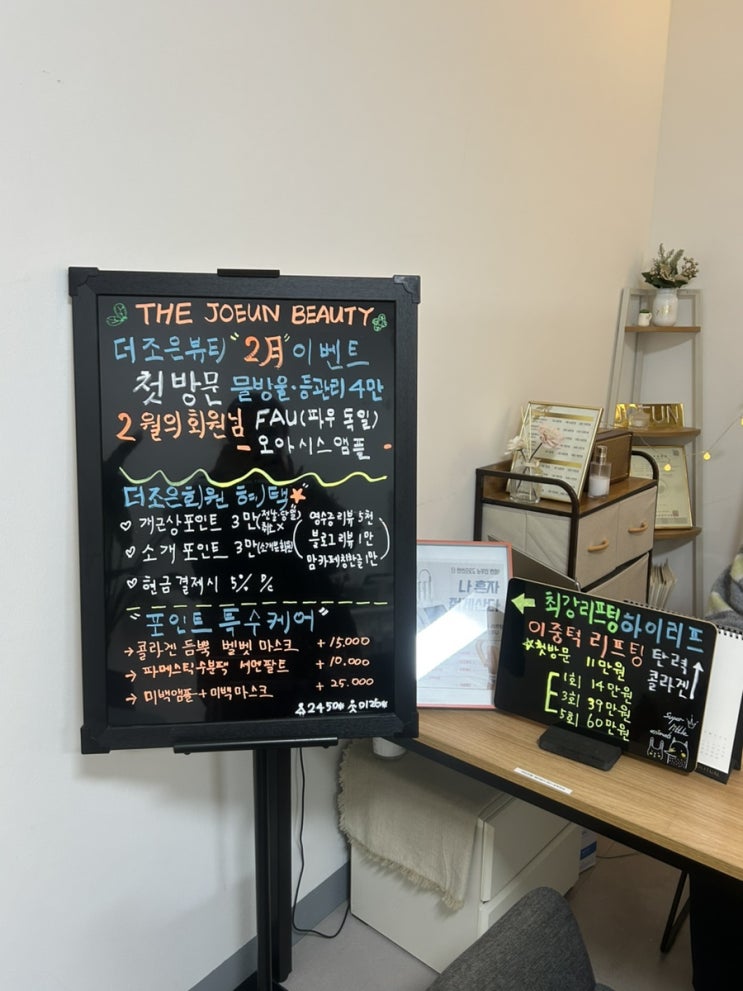 THE JOEUN BEAUTY
더조은뷰티 "2月" 이벤트
첫방문 물방울·등관리 4만
2월의 회원님 FAU(파우 독일)
- 오아시스앰플 -
더조은회원 혜택
♡ 개근상포인트 3만
♡ 소개 포인트 3만
영수증리뷰 5천
블로그리뷰 1만
맘카페칭찬글 1만
♡ 현금결제시 5% D/C
"포인트 특수케어"
→ 콜라겐 듬뿍 벨벳 마스크 + 15.000
→ 파머스틱수분팩 + 10.000
→ 미백앰플+미백마스크 + 25.000
나 혼자
최강리프팅 하이리프
이중턱 리프팅 탄력↑
콜라겐
첫방문 11만원
1회 14만원
3회 39만원
5회 60만원